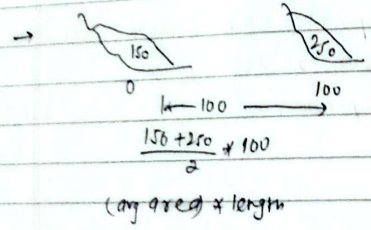 → 150 250
0 100
|← 100 →
150 + 250 / 2 * 100
(avg area) * length